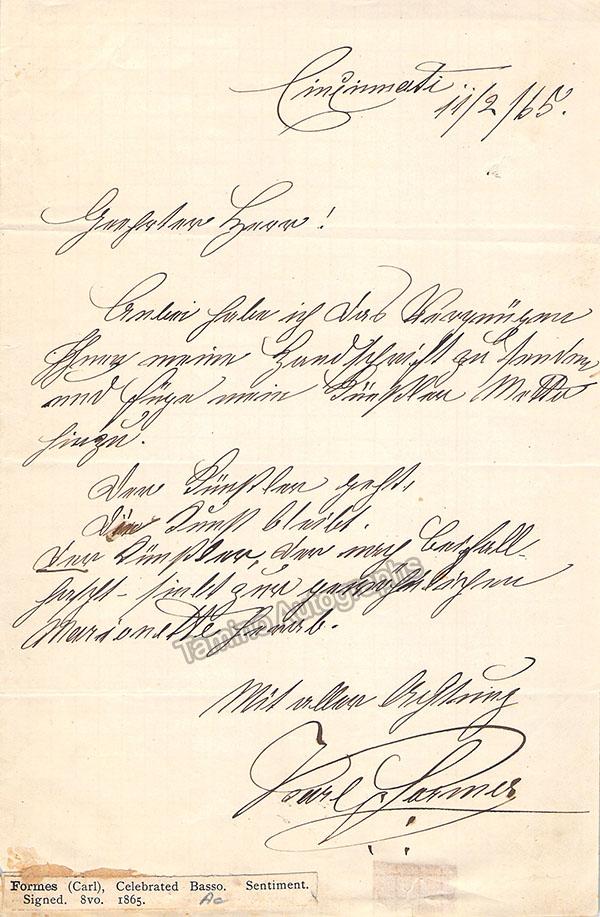 Cincinnati
11/2/65.
Geehrter Herr!
Anbei habe ich das Vergnügen
Ihnen meine Handschrift zu senden
und füge mein Künstler Motto
hinzu.
Der Künstler geht,
Die Kunst bleibt.
Der Künstler, der nach Beifall
hascht - sinkt zur gewöhnlichen
Marionette herab.
Mit aller Achtung
Karl Formes
Tamino Autographs
Formes (Carl), Celebrated Basso. Sentiment.
Signed. 8vo. 1865.